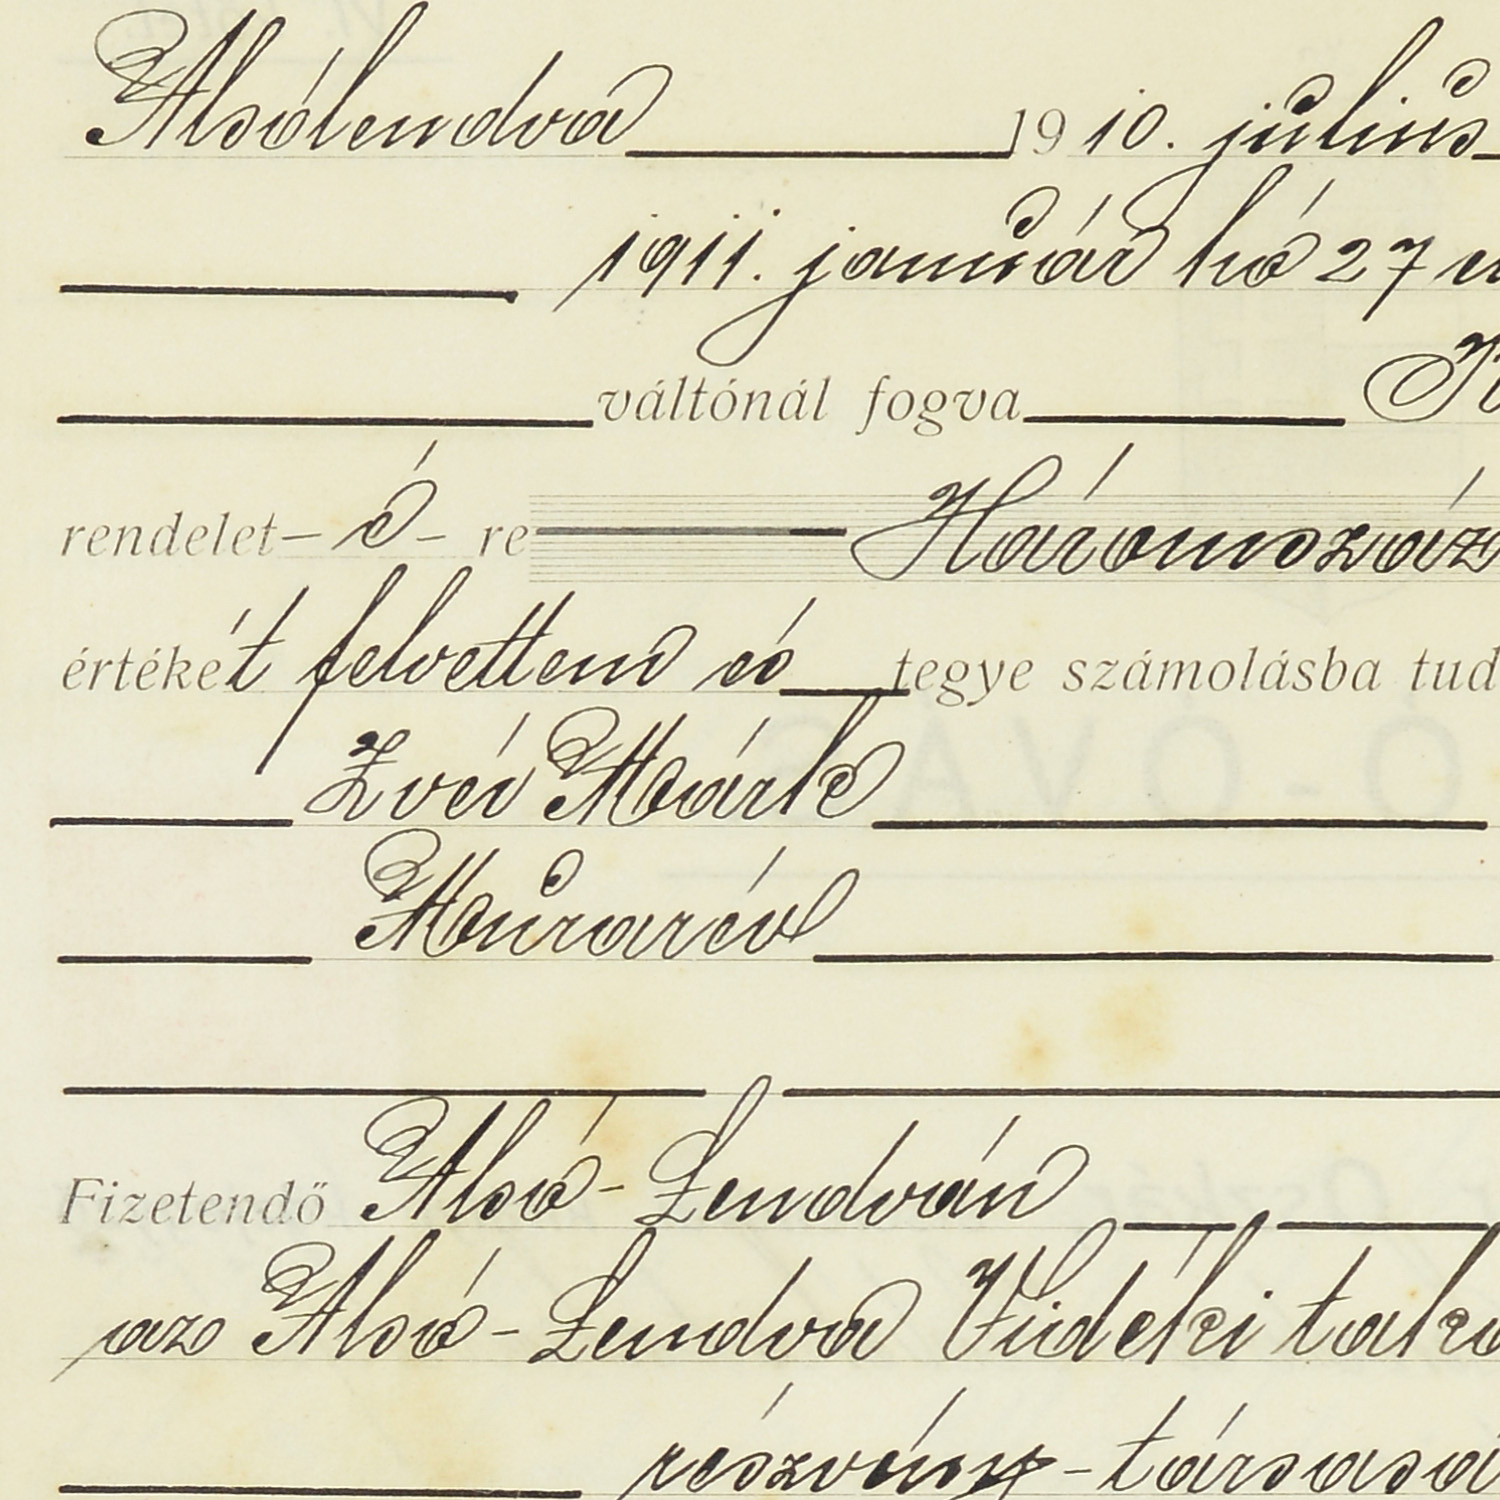 Alsólendva 1910. július
1911. január hó 27
váltónál fogva
rendelet – é – re Háromszáz
értékét felvettem és tegye számolásba tud
Zvér Márk
Murarév
Fizetendő Alsó-Lendván
az Alsó-Lendva Vidéki taka
részvény-társasá